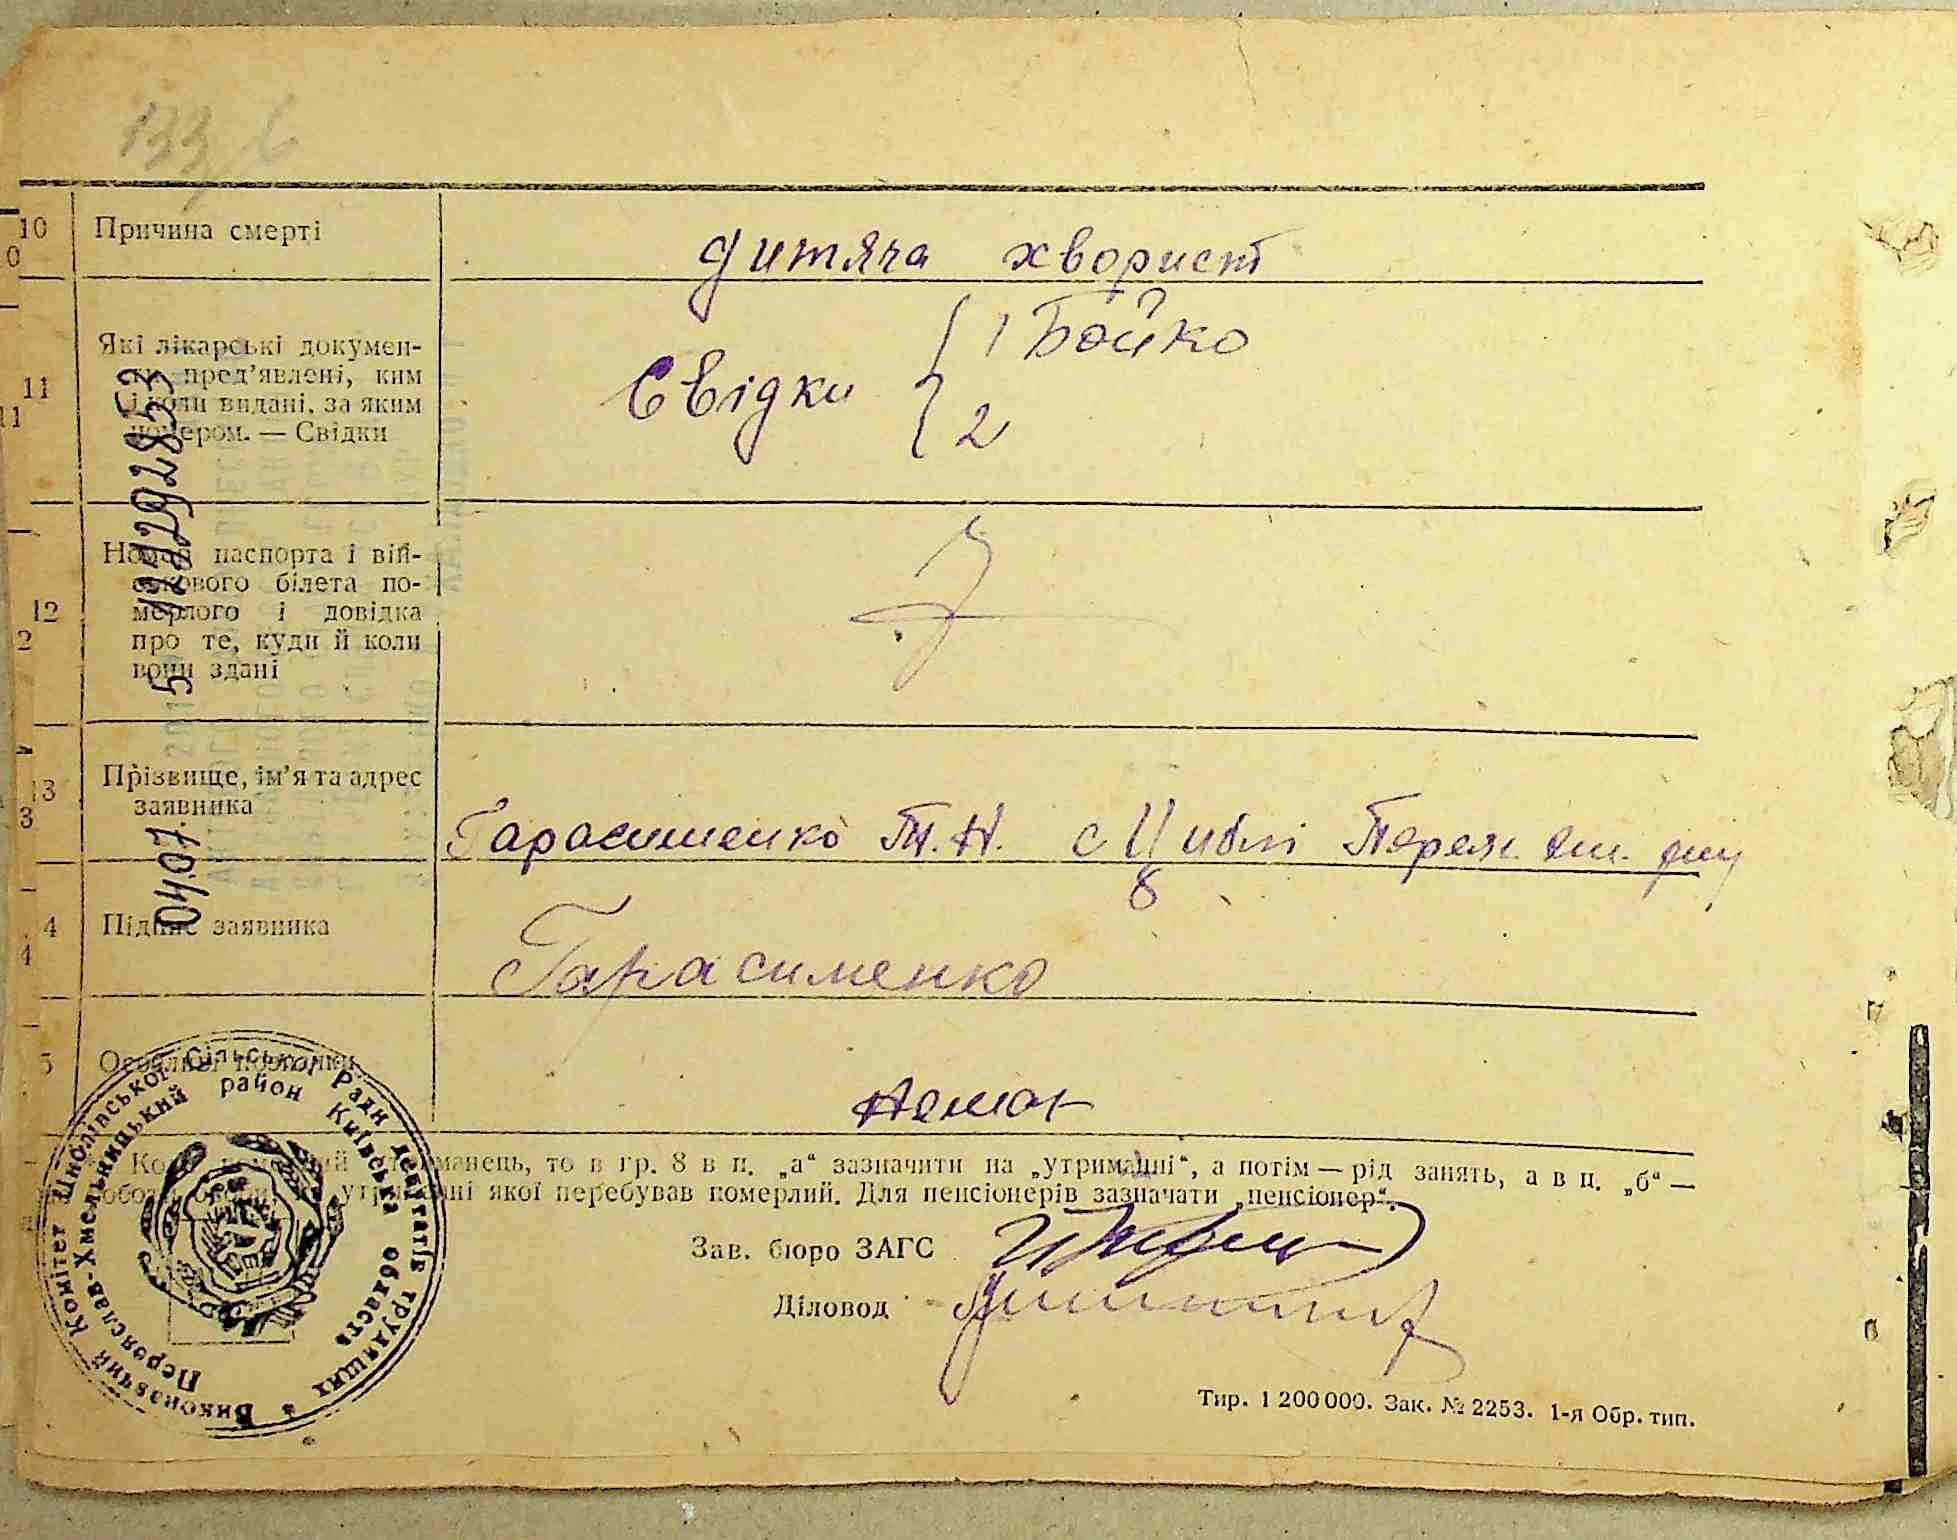 133
10 Причина смерті
дитяча хворист
11 Які лікарські докумен-
ти пред’явлені, ким
і коли видані, за яким
номером. — Свідки
Свідки { 1 Бойко
2
12 Номер паспорта і вій-
ськового білета по-
мерлого і довідка
про те, куди й коли
вони здані
13 Прізвище, ім’я та адрес
заявника
Гарасименко Т.Н. с Циблі Переял. Хм. р-ну
Підпис заявника
Гарасименко
Особливі позначки
Немає
утриманець, то в гр. 8 в п. „а“ зазначити на „утриманні“, а потім — рід занять, а в п. „б“ —
особи, на утриманні якої перебував померлий. Для пенсіонерів зазначати „пенсіонер“.
Зав. бюро ЗАГС
Діловод
Тир. 1 200 000. Зак. № 2253. 1-я Обр. тип.
Виконавчий Комітет Циблівської Сільської Ради депутатів трудящих
Переяслав-Хмельницький район Київська область